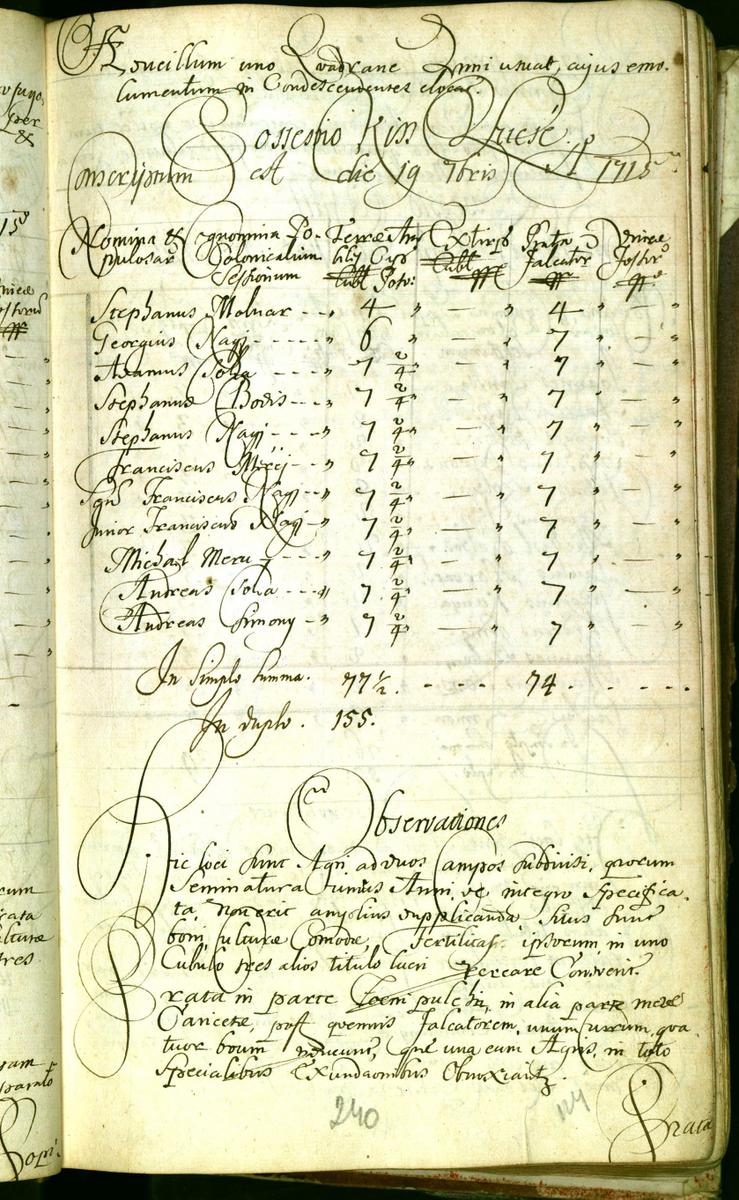 Educillum uno Quadrane Anni usuat, cujus emo-
lumentum in Condescendentes elocat.
Possessio Kiss
Conscriptum est die 19 7bris Aº 1715
Nomina & Cognomina Po- Terræ Ara Extirp Prata Vineæ
pulosar Colonicalium bilis Cap Cubl Falcator Fossor
Sessionum Cubl Poson:
Stephanus Molnar --- „ 4 „ — „ 4 „ — „
Georgius Nagy ---- „ 6 „ — „ 7 „ — „
Adamus Solia ---- „ 7 2/4 „ — „ 7 „ — „
Stephanus Bodis --- „ 7 2/4 „ — „ 7 „ — „
Stephanus Nagy --- „ 7 2/4 „ — „ 7 „ — „
Franciscus --- „ 7 2/4 „ — „ 7 „ — „
Franciscus Nagy -- „ 7 2/4 „ — „ 7 „ — „
Junior Franciscus Nagy - „ 7 2/4 „ — „ 7 „ — „
Michael --- „ 7 2/4 „ — „ 7 „ — „
Andreas Solia --- „ 7 2/4 „ — „ 7 „ — „
Andreas Simony - „ 7 2/4 „ — „ 7 „ — „
In Simplo Summa. 77 1/2. - - - - 74. - - - - -
In duplo. 155.
Observationes
Hic loci sunt Agri ad duos Campos subdivisi, quorum
Seminatura unius Anni ex integro Specifica-
ta, non erit amplius dupplicanda Situs sunt
boni, culturæ Comodæ, Fertilitas ipsorum in uno
Cubulo tres alios titulo lucri Percare Convenit.
Prata in parte Foeni pulchri, in alia parte mere
Cariceti, post quemvis Falcatorem, unum Currum qua-
tuor boum producunt, quæ una cum Agris in toto
Specialibus Exundaonibus Obnoxiantz.
240
124
Prata